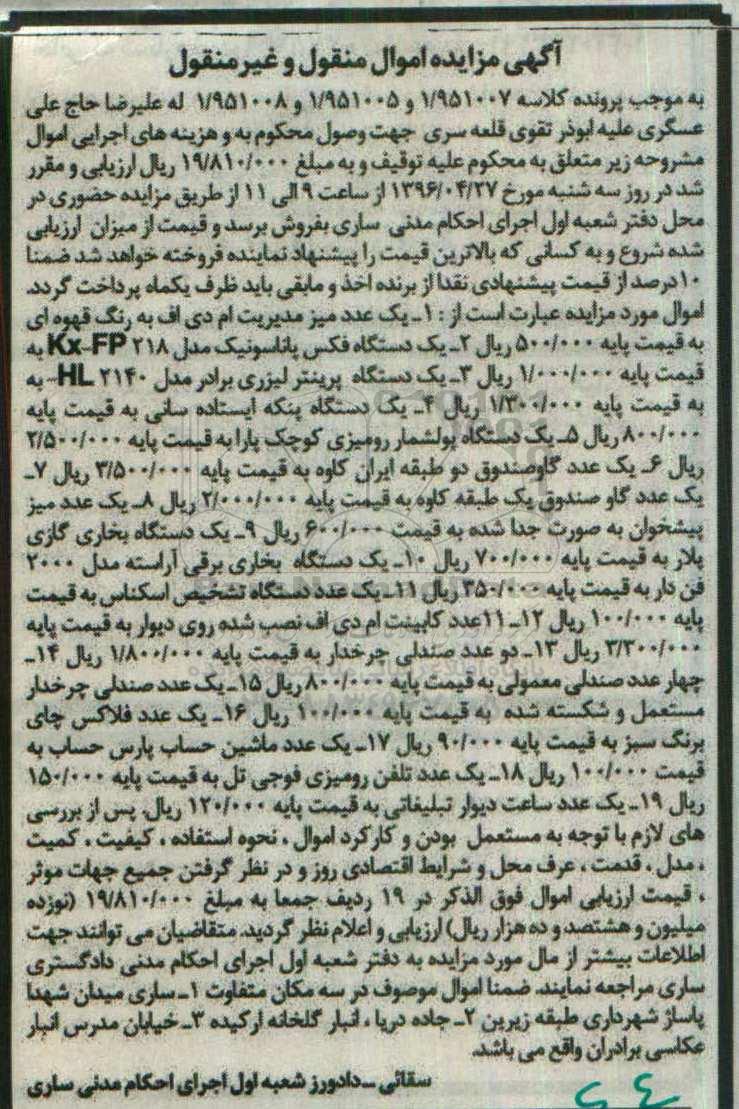 آگهی مزایده اموال منقول و غیر منقول
به موجب پرونده کلاسه ۱/۹۵۱۰۰۷ و ۱/۹۵۱۰۰۵ و ۱/۹۵۱۰۰۸ له علیرضا حاج علی
عسگری علیه ابوذر تقوی قلعه سری جهت وصول محکوم به و هزینه های اجرایی اموال
مشروحه زیر متعلق به محکوم علیه توقیف و به مبلغ ۱۹/۸۱۰/۰۰۰ ریال ارزیابی و مقرر
شد در روز سه شنبه مورخ ۱۳۹۶/۰۴/۲۷ از ساعت ۹ الی ۱۱ از طریق مزایده حضوری در
محل دفتر شعبه اول اجرای احکام مدنی ساری بفروش برسد و قیمت از میزان ارزیابی
شده شروع و به کسانی که بالاترین قیمت را پیشنهاد نماینده فروخته خواهد شد ضمنا
۱۰درصد از قیمت پیشنهادی نقدا از برنده اخذ و مابقی باید ظرف یکماه پرداخت گردد.
اموال مورد مزایده عبارت است از : ۱ـ یک عدد میز مدیریت ام دی اف به رنگ قهوه ای
به قیمت پایه ۵۰۰/۰۰۰ ریال ۲ـ یک دستگاه فکس پاناسونیک مدل Kx-FP ۲۱۸ به
قیمت پایه ۱/۰۰۰/۰۰۰ ریال ۳ـ یک دستگاه پرینتر لیزری برادر مدل HL ۲۱۴۰- به
به قیمت پایه ۱/۳۰۰/۰۰۰ ریال ۴ـ یک دستگاه پنکه ایستاده سانی به قیمت پایه
۸۰۰/۰۰۰ ریال ۵ـ یک دستگاه پولشمار رومیزی کوچک پارا به قیمت پایه ۲/۵۰۰/۰۰۰
ریال ۶ـ یک عدد گاوصندوق دو طبقه ایران کاوه به قیمت پایه ۳/۵۰۰/۰۰۰ ریال ۷ـ
یک عدد گاو صندوق یک طبقه کاوه به قیمت پایه ۲/۰۰۰/۰۰۰ ریال ۸ـ یک عدد میز
پیشخوان به صورت جدا شده به قیمت ۶۰۰/۰۰۰ ریال ۹ـ یک دستگاه بخاری گازی
پلار به قیمت پایه ۷۰۰/۰۰۰ ریال ۱۰ـ یک دستگاه بخاری برقی آراسته مدل ۲۰۰۰
فن دار به قیمت پایه ۳۵۰/۰۰۰ ریال ۱۱ـ یک عدد دستگاه تشخیص اسکناس به قیمت
پایه ۱۰۰/۰۰۰ ریال ۱۲ـ ۱۱عدد کابینت ام دی اف نصب شده روی دیوار به قیمت پایه
۳/۳۰۰/۰۰۰ ریال ۱۳ـ دو عدد صندلی چرخدار به قیمت پایه ۱/۸۰۰/۰۰۰ ریال ۱۴ـ
چهار عدد صندلی معمولی به قیمت پایه ۸۰۰/۰۰۰ ریال ۱۵ـ یک عدد صندلی چرخدار
مستعمل و شکسته شده به قیمت پایه ۱۰۰/۰۰۰ ریال ۱۶ـ یک عدد فلاکس چای
برنگ سبز به قیمت پایه ۹۰/۰۰۰ ریال ۱۷ـ یک عدد ماشین حساب پارس حساب به
قیمت ۱۰۰/۰۰۰ ریال ۱۸ـ یک عدد تلفن رومیزی فوجی تل به قیمت پایه ۱۵۰/۰۰۰
ریال ۱۹ـ یک عدد ساعت دیوار تبلیغاتی به قیمت پایه ۱۲۰/۰۰۰ ریال. پس از بررسی
های لازم با توجه به مستعمل بودن و کارکرد اموال ، نحوه استفاده ، کیفیت ، کمیت
، مدل ، قدمت ، عرف محل و شرایط اقتصادی روز و در نظر گرفتن جمیع جهات موثر
، قیمت ارزیابی اموال فوق الذکر در ۱۹ ردیف جمعا به مبلغ ۱۹/۸۱۰/۰۰۰ (نوزده
میلیون و هشتصد و ده هزار ریال) ارزیابی و اعلام نظر گردید. متقاضیان می توانند جهت
اطلاعات بیشتر از مال مورد مزایده به دفتر شعبه اول اجرای احکام مدنی دادگستری
ساری مراجعه نمایند. ضمنا اموال موصوف در سه مکان متفاوت ۱ـ ساری میدان شهدا
پاساژ شهرداری طبقه زیرین ۲ـ جاده دریا ، انبار گلخانه ارکیده ۳ـ خیابان مدرس انبار
عکاسی برادران واقع می باشد.
سقائی ـ دادورز شعبه اول اجرای احکام مدنی ساری